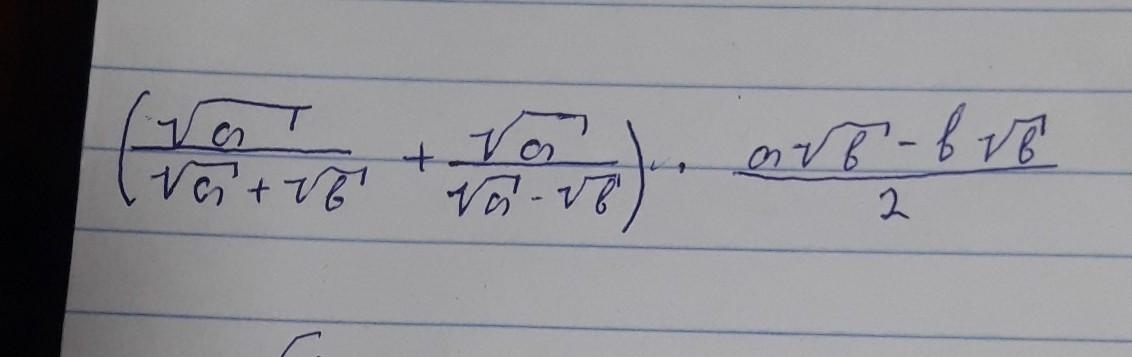 (√a / (√a + √b) + √a / (√a - √b)) · (a√b - b√b) / 2